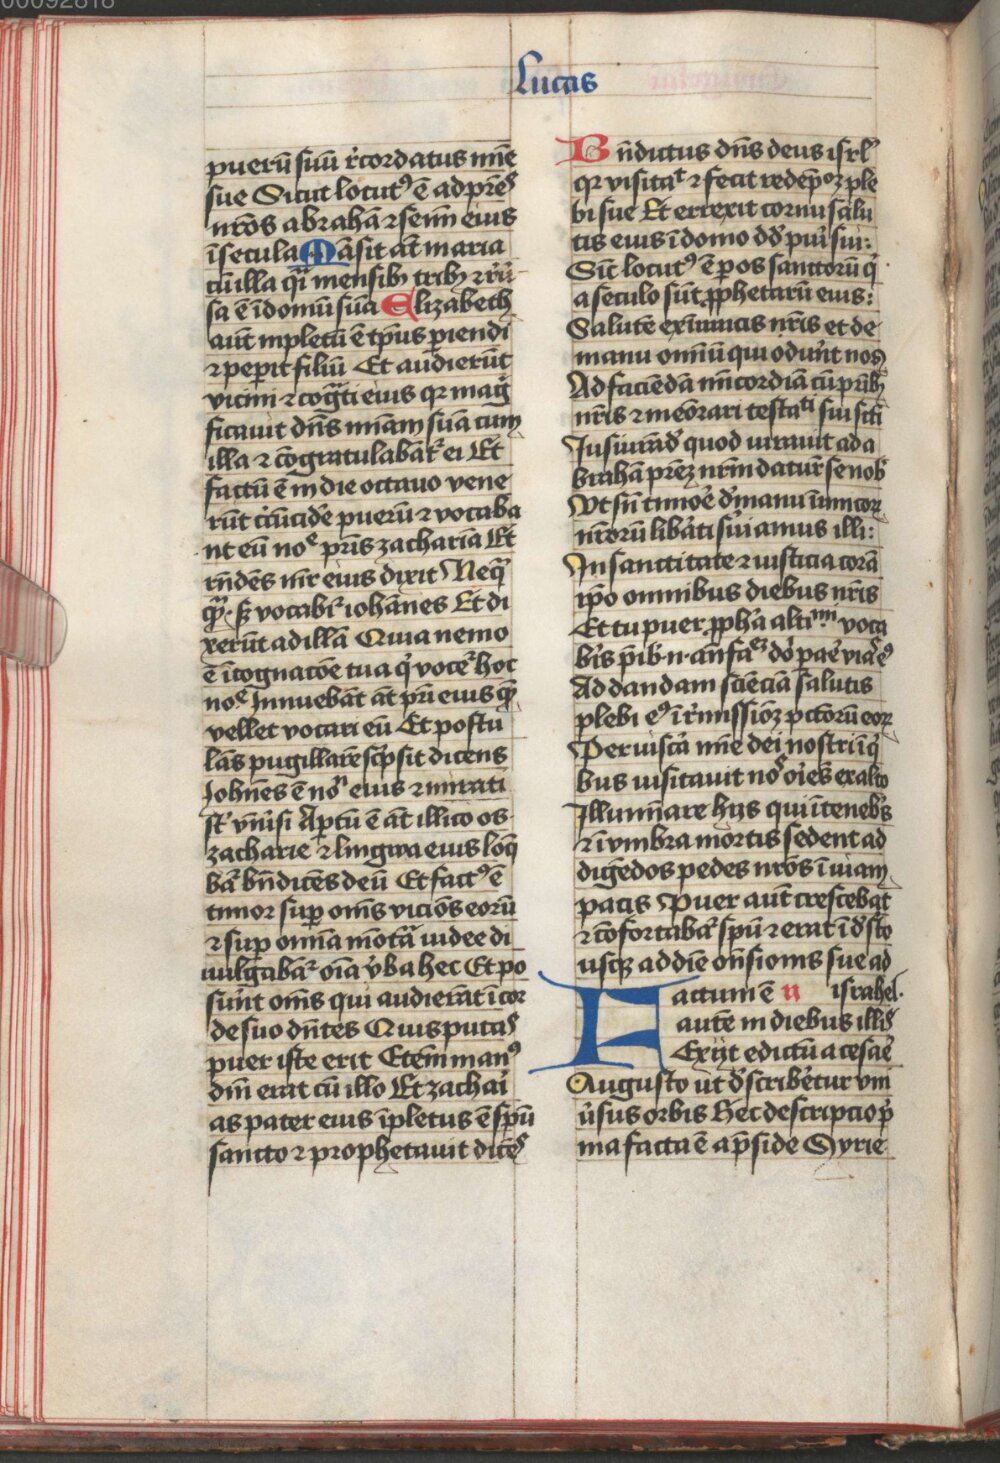 00092818
Lucas
puerū suū r̄cordatus mīe
sue Sicut locutꝰ ē ad pr̄es
nr̄os abrahā ⁊ semī eius
ī secula Māsit aūt maria
cū illa q̄i mensibꝫ tribꝫ ⁊ r̄ū
sa ē ī domū suā Elizabeth
aūt inpletū ē tp̄us pariendi
⁊ peperit filiū Et audierūt
vicini ⁊ coḡti eius qꝛ maḡ
ficauit dn̄s mīam suā cum
illa ⁊ cōgratulabāt̄ ei Et
factū ē in die octauo vene
rūt circūcide puerū ⁊ vocaba
nt eū noe pr̄is zachariā Et
rn̄dēs mr̄ eius dixit Neq̄
q̄ꝫ · sꝫ vocabit̄ iohānes Et di
xerūt ad illā Quia nemo
ē ī cognacōe tua q̇ vocet̄ hoc
noe Innuebāt aūt pr̄i eius q̄ꝫ
vellet vocari eū Et postu
lās pugillarē scp̄sit dicens
John̄es ē non̄ eius ⁊ mirati
st̄ vn̄iusi Apertū ē aūt illico os
zacharie ⁊ lingwa eius loq̄
bat̄ bn̄dicēs deū Et factꝰ ē
timor sup̄ om̄s vicīos eorū
⁊ sup̄ om̄ia mōtā iudee di
uulgabāt̄ oīa v̄ba hec Et po
suūt om̄s qui audierāt ī cor
de suo dn̄tes Quis putas
puer iste erit Etem̄ manꝰ
dn̄i erat cū illo Et zachari
as pater eius īpletus ē spū
sancto ⁊ prophetauit dicēs
Bn̄dictus dn̄s deus isrl̄
qꝛ visitat ⁊ fecit redēpcōꝫ ple
bi sue Et errexit cornu salu
tis eius ī domo dd̄ pui sui:
Sic̄ locutꝰ ē p̄ os sanctorū q̇
a seculo sūt ꝓphetarū eius:
Salutē ex īimicis nr̄is et de
manu om̄iū qui odūnt nos
Ad faciēdā mīcordiā cū pr̄ibꝫ
nr̄is ⁊ meōrari testati sui scī
Jusiurād quod iurauit ad a
brahā prēꝫ nrm̄ daturū se nob
Vt sn̄ timoē d̄ manu īimicoꝝ
nr̄orū libati s̄uiamus illi:
In sanctitate ⁊ iusticia corā
ip̄o omnibus diebus nr̄is
Et tu puer ꝓpha altimi voca
bis p̄ibꝫ n. an̄ faꝫ dn̄ parē vias eꝰ
Ad dandam scīēciā salutis
plebi eꝰ ī r̄missiōꝫ pctōrū eoꝝ
Per uiscā mīe dei nostri ī q̇
bus uisitauit nos oīes ex alto
Illumīare hijs qui ī tenebs
⁊ ī vmbra mortis sedent ad
diḡedos pedes nr̄os ī uiam
pacis Puer aūt crescebat
⁊ cōfortabat̄ spū ⁊ erat ī d̄sto
usqꝫ ad diē on̄sionis sue ad
Factum ē ii israhel.
autē in diebus illis
Exijt edictū a cesae
Augusto ut d̄scribēretur vni
u̇sus orbis Hec descripcio p̄
ma facta ē a p̄side Syrie